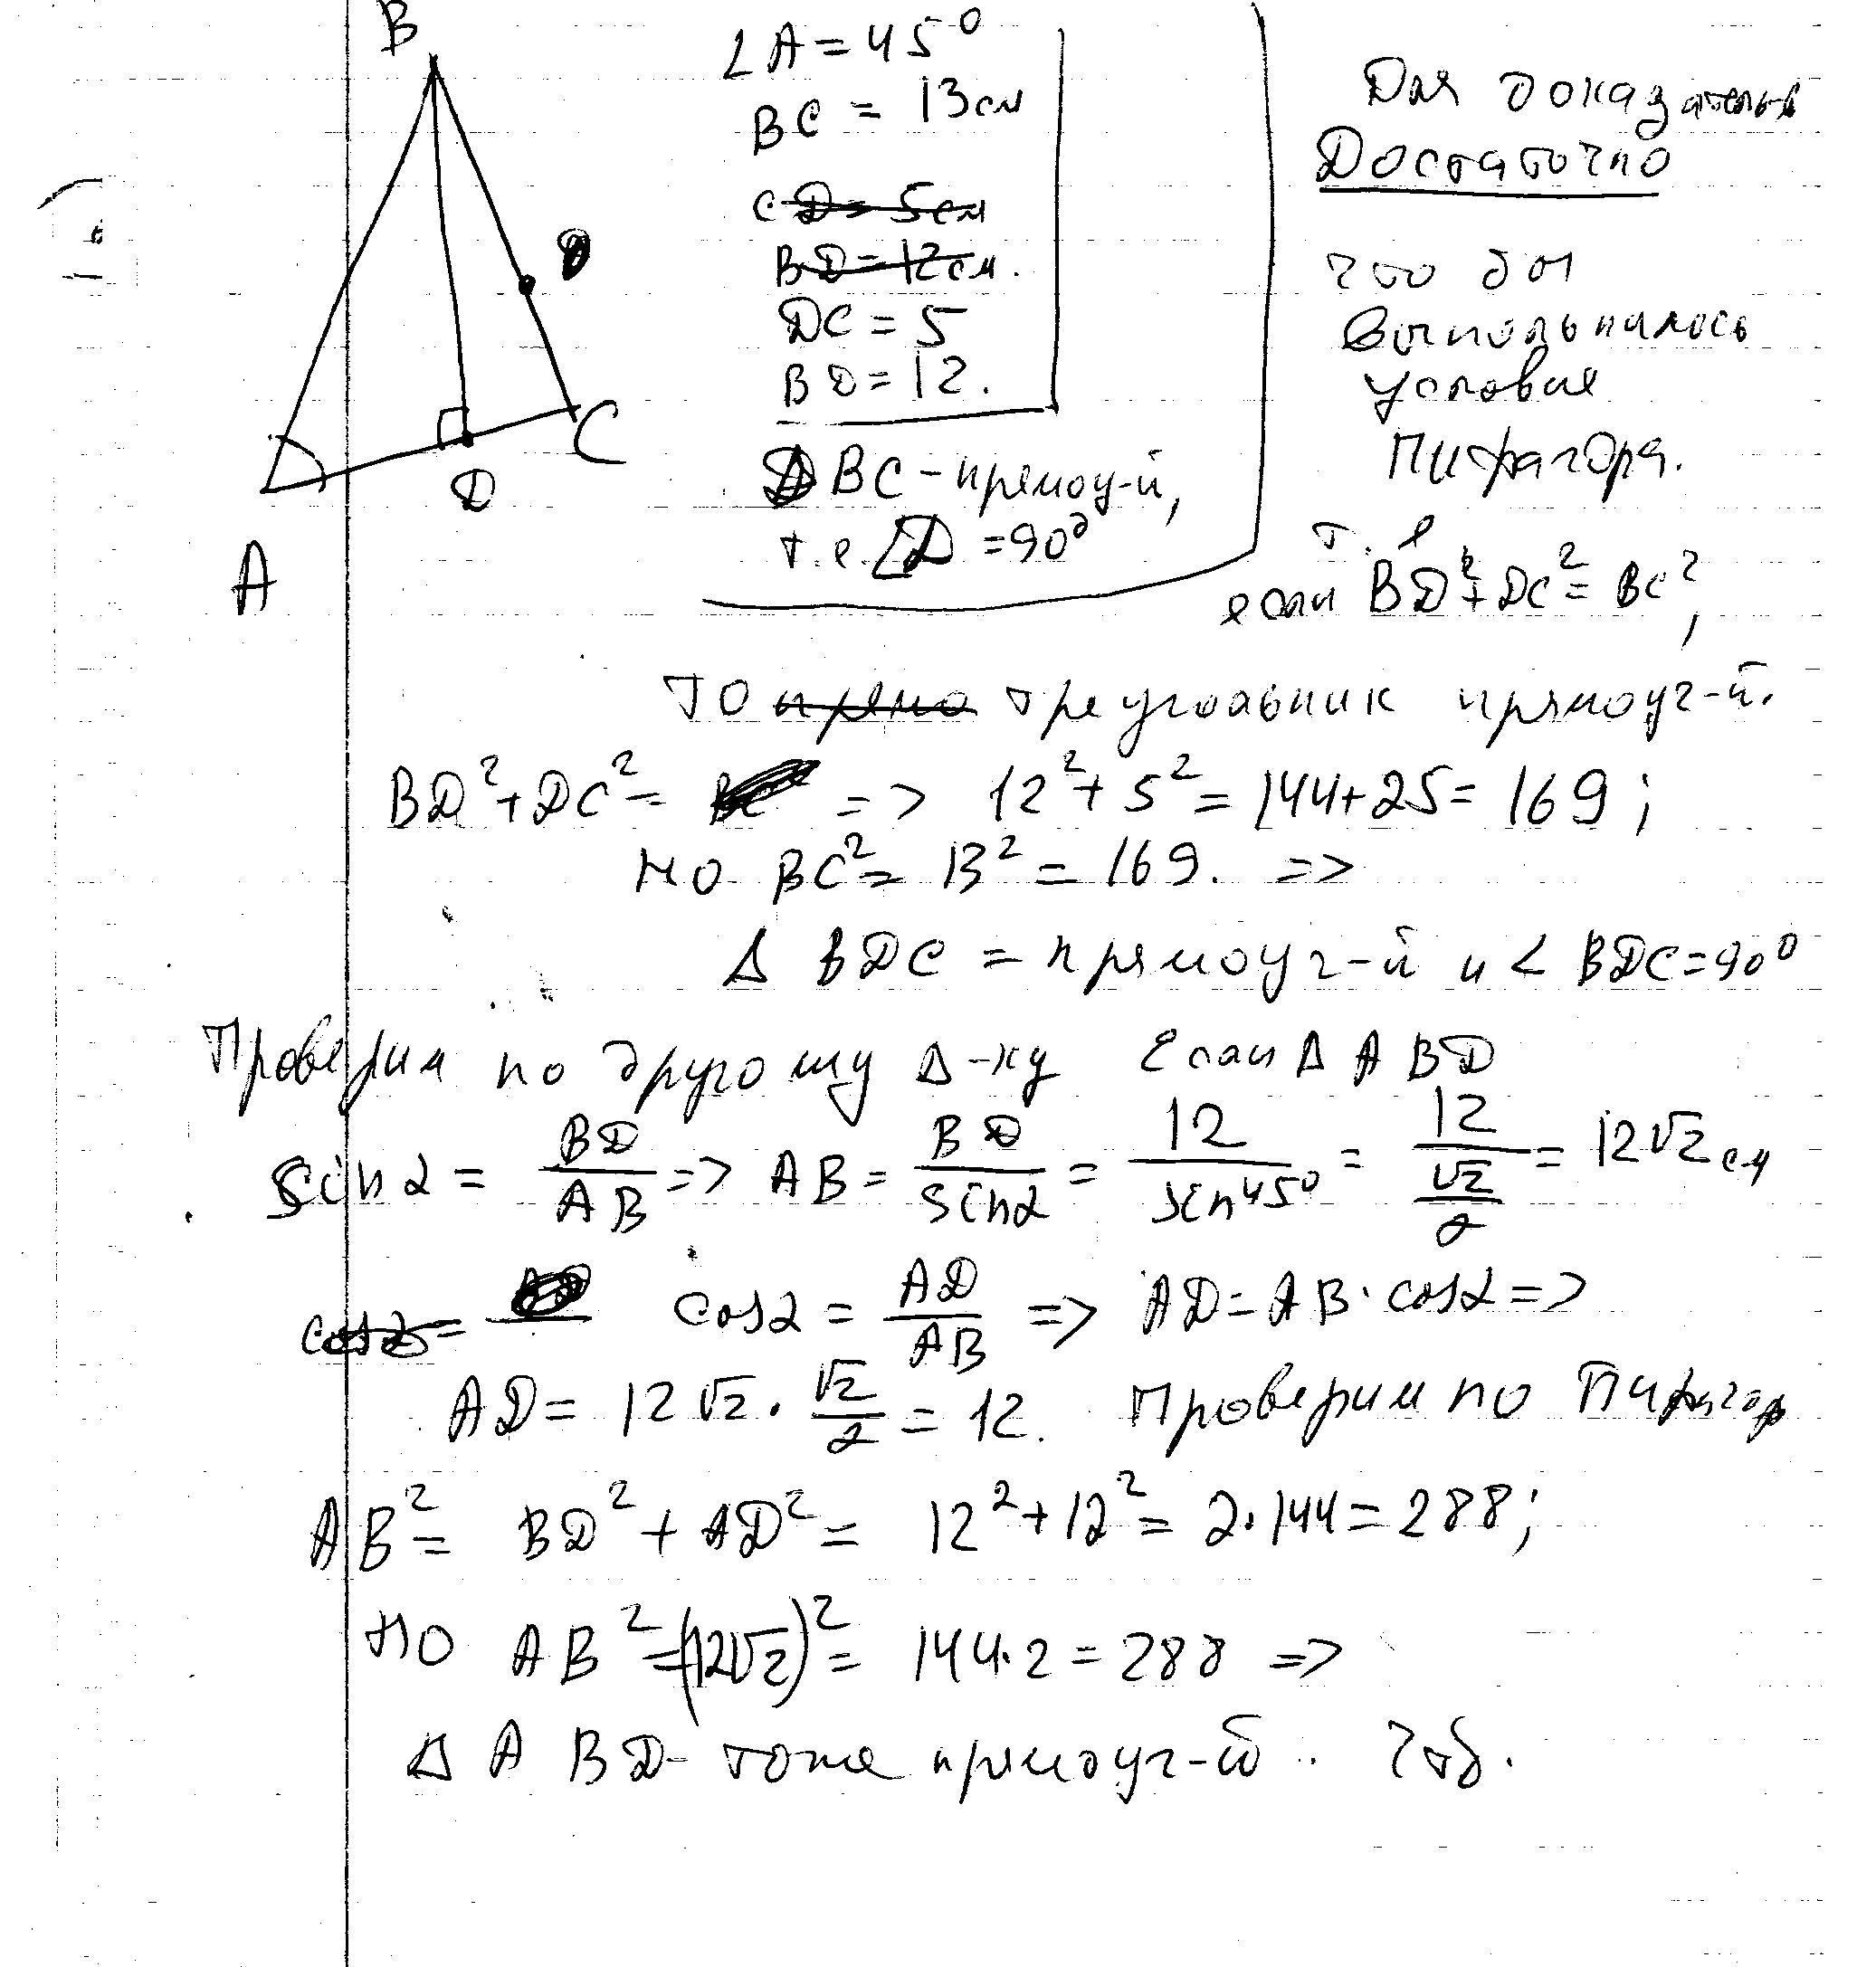 B
∠A = 45°
BC = 13 см
CD = 5 см
BD = 12 см.
DC = 5
BD = 12.
C
D
A
DBC - прямоу-й,
т.е. ∠D = 90°
Для доказательв
Достаточно
что бы
выпольнилось
условия
Пифагора.
т. е
если BD² + DC² = BC²,
то прямо треугольник прямоуг-й.
BD² + DC² = BC => 12² + 5² = 144 + 25 = 169 ;
но BC² = 13² = 169. =>
Δ BDC = прямоуг-й и < BDC = 90°
Проверим по другому Δ-ку Если Δ ABD
sin α = BD/AB => AB = BD/sin α = 12/sin 45° = 12/(√2/2) = 12√2 см
cos α = cos α = AD/AB => AD = AB · cos α =>
AD = 12√2 · √2/2 = 12. Проверим по Пифагор
AB² = BD² + AD² = 12² + 12² = 2 · 144 = 288 ;
но AB² = (12√2)² = 144 · 2 = 288 =>
Δ ABD - тоже прямоуг-й .. Чтд.